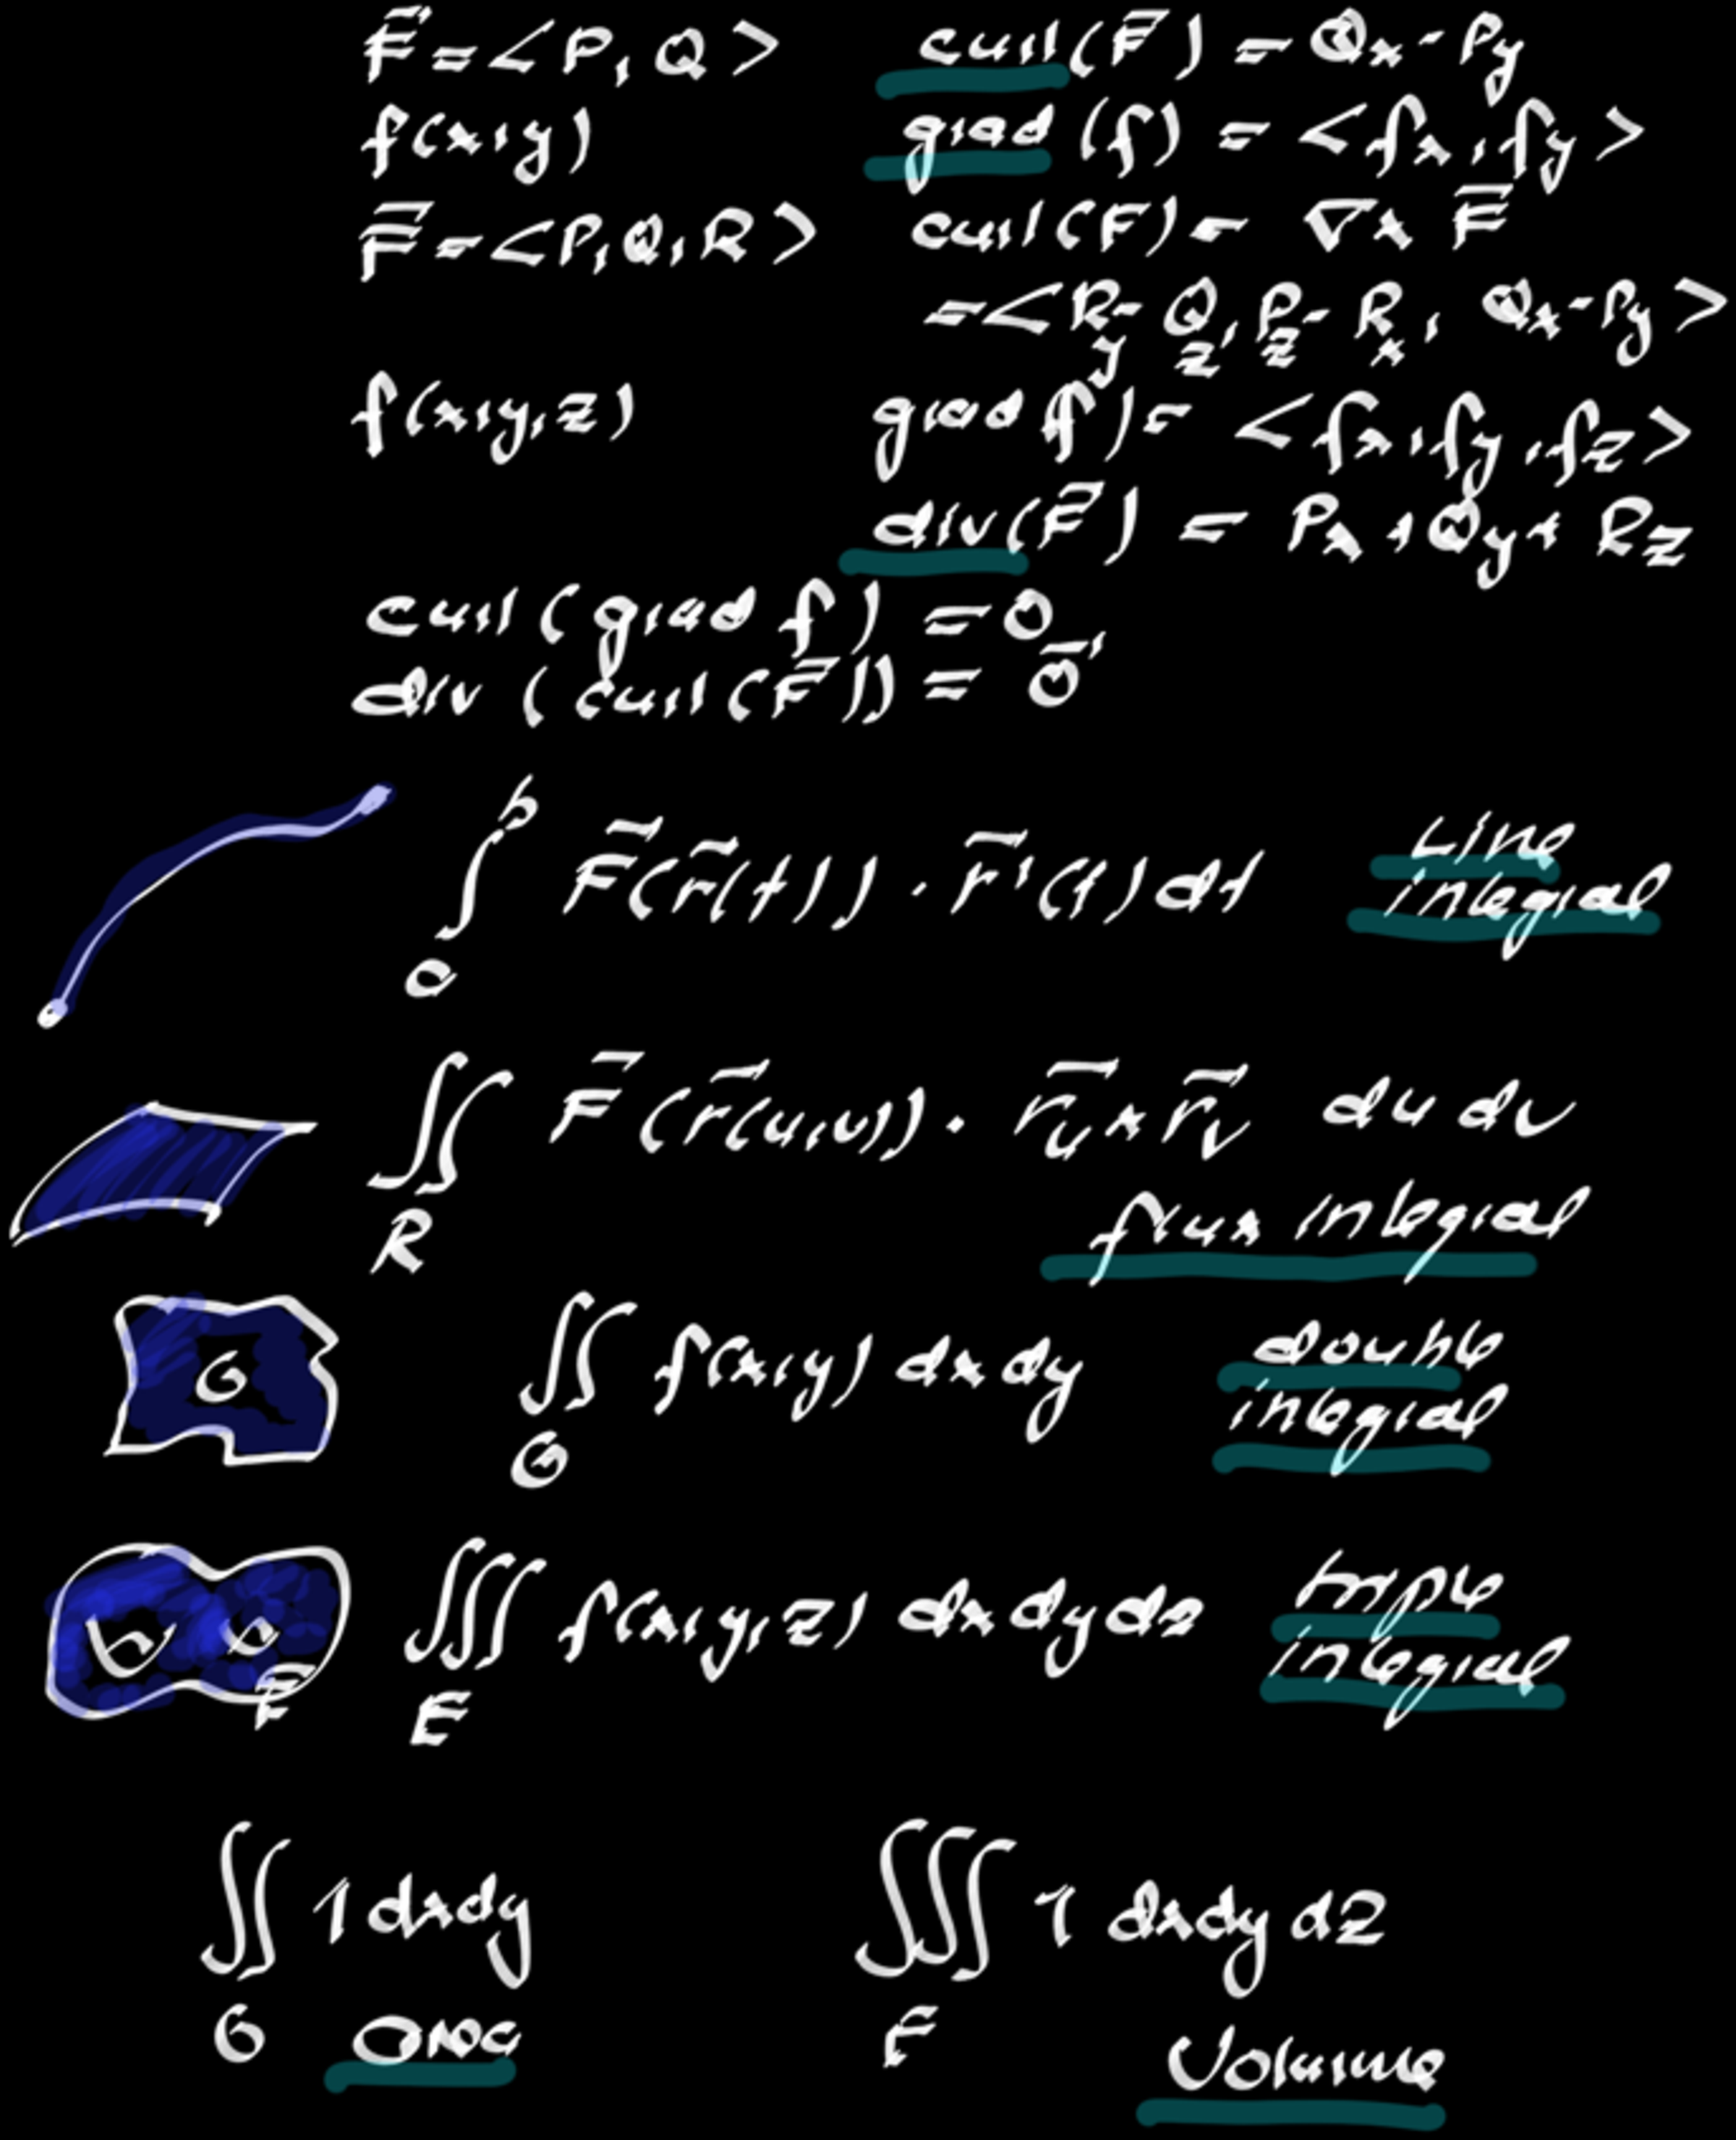 F⃗ = <P, Q>   curl(F⃗) = Qx - Py
f(x,y)   grad(f) = <fx, fy>
F⃗ = <P,Q,R>   curl(F) = ∇ x F⃗
= <Ry - Qz, Pz - Rx, Qx - Py>
f(x,y,z)   grad f) = <fx, fy, fz>
div(F⃗) = Px + Qy + Rz
curl(grad f) = 0
div (curl(F⃗)) = 0⃗
∫_a^b F⃗(r⃗(t)) · r⃗'(t) dt   Line
integral
∬_R F⃗(r⃗(u,v)) · r⃗u x r⃗v du dv
flux integral
G   ∬_G f(x,y) dx dy   double
integral
E   ∭_E f(x,y,z) dx dy dz   triple
integral
∬_G 1 dx dy   ∭_E 1 dx dy dz
area   Volume